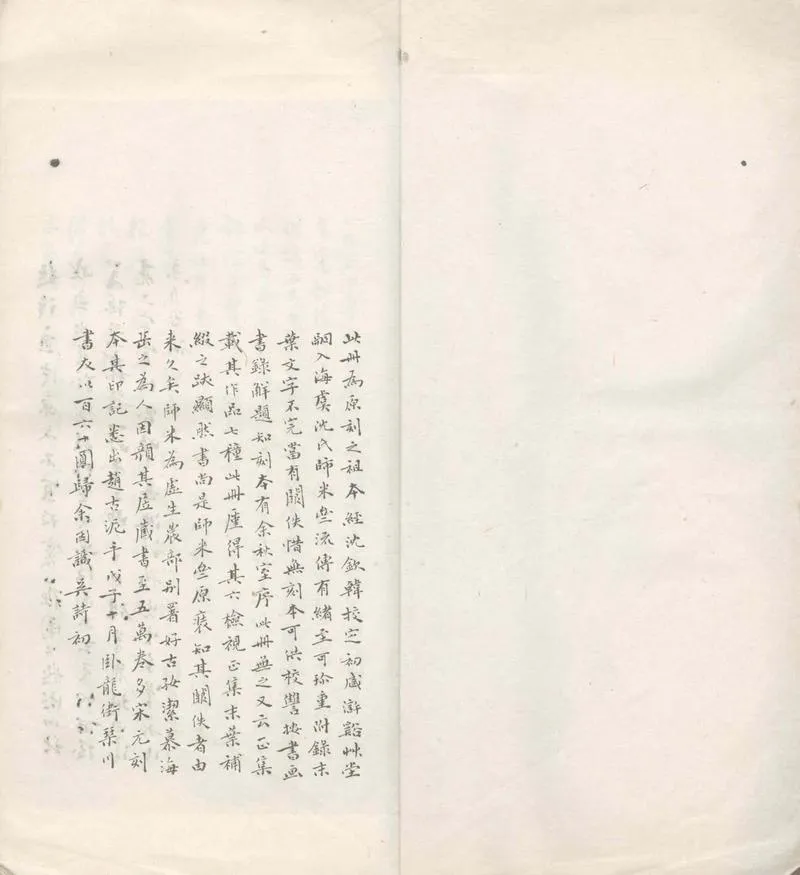 此册為原刻之祖本經沈欽韓校定初藏謝谿艸堂
嗣入海虞沈氏師米齋流傳有緒至可珍重附錄末
葉文字不完當有闕佚惜無刻本可供校讐按書画
書錄解題知刻本有余秋室序此册無之又云正集
載其作品七種此册廑得其六檢視正集末葉補
綴之跡顯然書尚是師米齋原裝知其闕佚者由
来久矣師米為虛生農部别署好古孜潔慕海
岳之為人因顏其居藏書至五萬卷多宋元刻
本其印記悉出趙古泥手戊子十月卧龍街琹川
書友以百六十圓歸余因識吴詩初